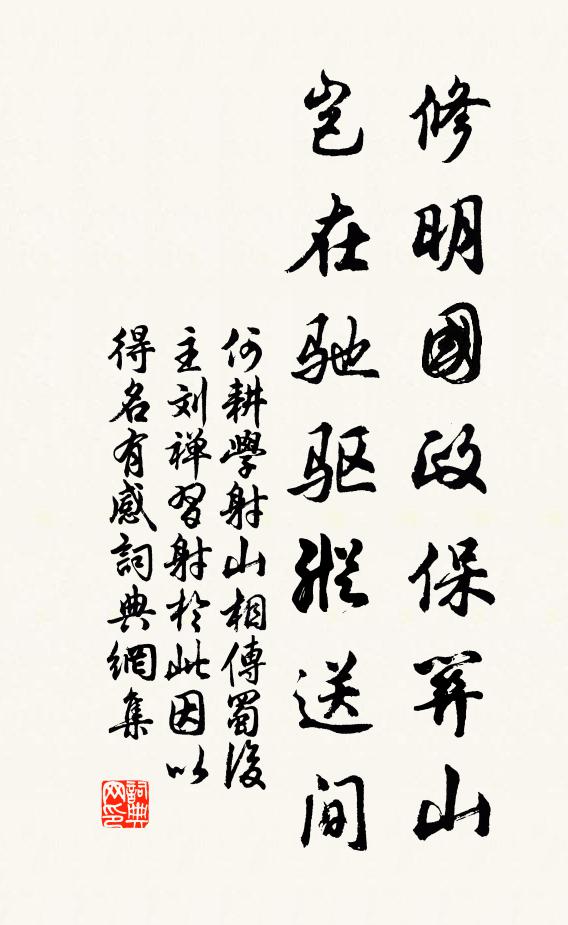 修明國政保關山
岂在驰驱縱送间
何耕學射山相傳蜀後
主刘禅習射於此因以
得名有感詞典網集
詞典网印